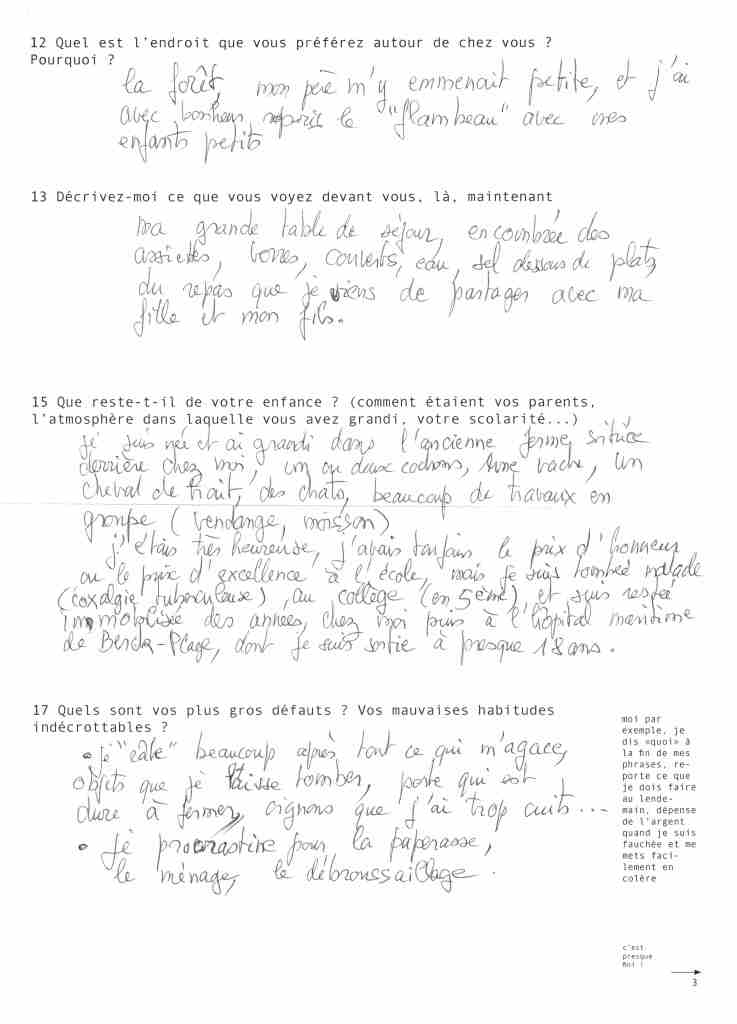 12 Quel est l'endroit que vous préférez autour de chez vous ?
Pourquoi ?
la forêt, mon père m'y emmenait petite, et j'ai
avec bonheur repris le "flambeau" avec mes
enfants petits
13 Décrivez-moi ce que vous voyez devant vous, là, maintenant
ma grande table de séjour, encombrée des
assiettes, verres, couverts, eau, sel dessous de plats,
du repas que je viens de partager avec ma
fille et mon fils.
15 Que reste-t-il de votre enfance ? (comment étaient vos parents,
l'atmosphère dans laquelle vous avez grandi, votre scolarité...)
Je suis née et ai grandi dans l'ancienne ferme, située
derrière chez moi, un ou deux cochons, une vache, un
cheval de trait, des chats, beaucoup de travaux en
groupe (vendange, moisson)
j'étais très heureuse, j'avais toujours le prix d'honneur
ou le prix d'excellence à l'école, mais je suis tombée malade
(coxalgie tuberculeuse), au collège (en 5ème) et suis restée
immobilisée des années, chez moi puis à l'hôpital maritime
de Berck-Plage, dont je suis sortie à presque 18 ans.
17 Quels sont vos plus gros défauts ? Vos mauvaises habitudes
indécrottables ?
• Je "râle" beaucoup après tout ce qui m'agace,
objets que je laisse tomber, porte qui est
dure à fermer, oignons que j'ai trop cuits...
• Je procrastine pour la paperasse,
le ménage, le débroussaillage.
moi par
exemple, je
dis «quoi» à
la fin de mes
phrases, re-
porte ce que
je dois faire
au lende-
main, dépense
de l'argent
quand je suis
fauchée et me
mets faci-
lement en
colère
c'est
presque
fini !
3